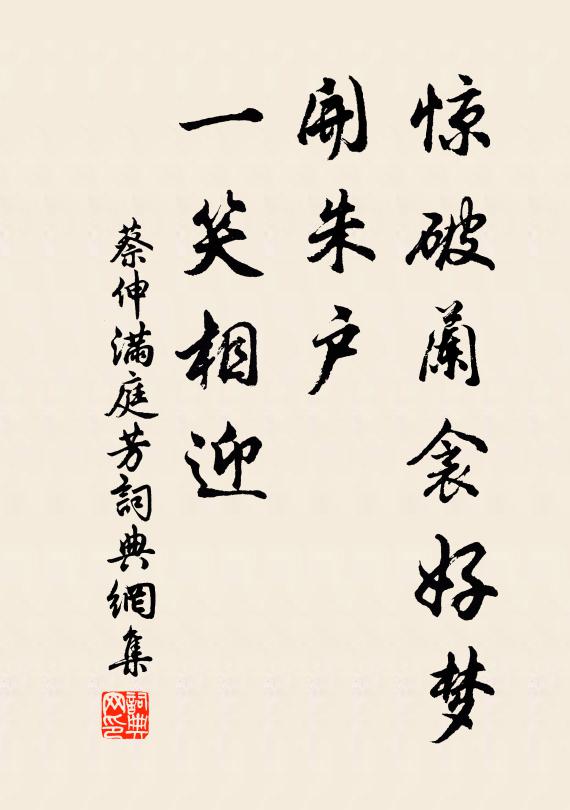 惊破蘭衾好梦
開朱户
一笑相迎
蔡伸满庭芳詞典網集
詞典网印